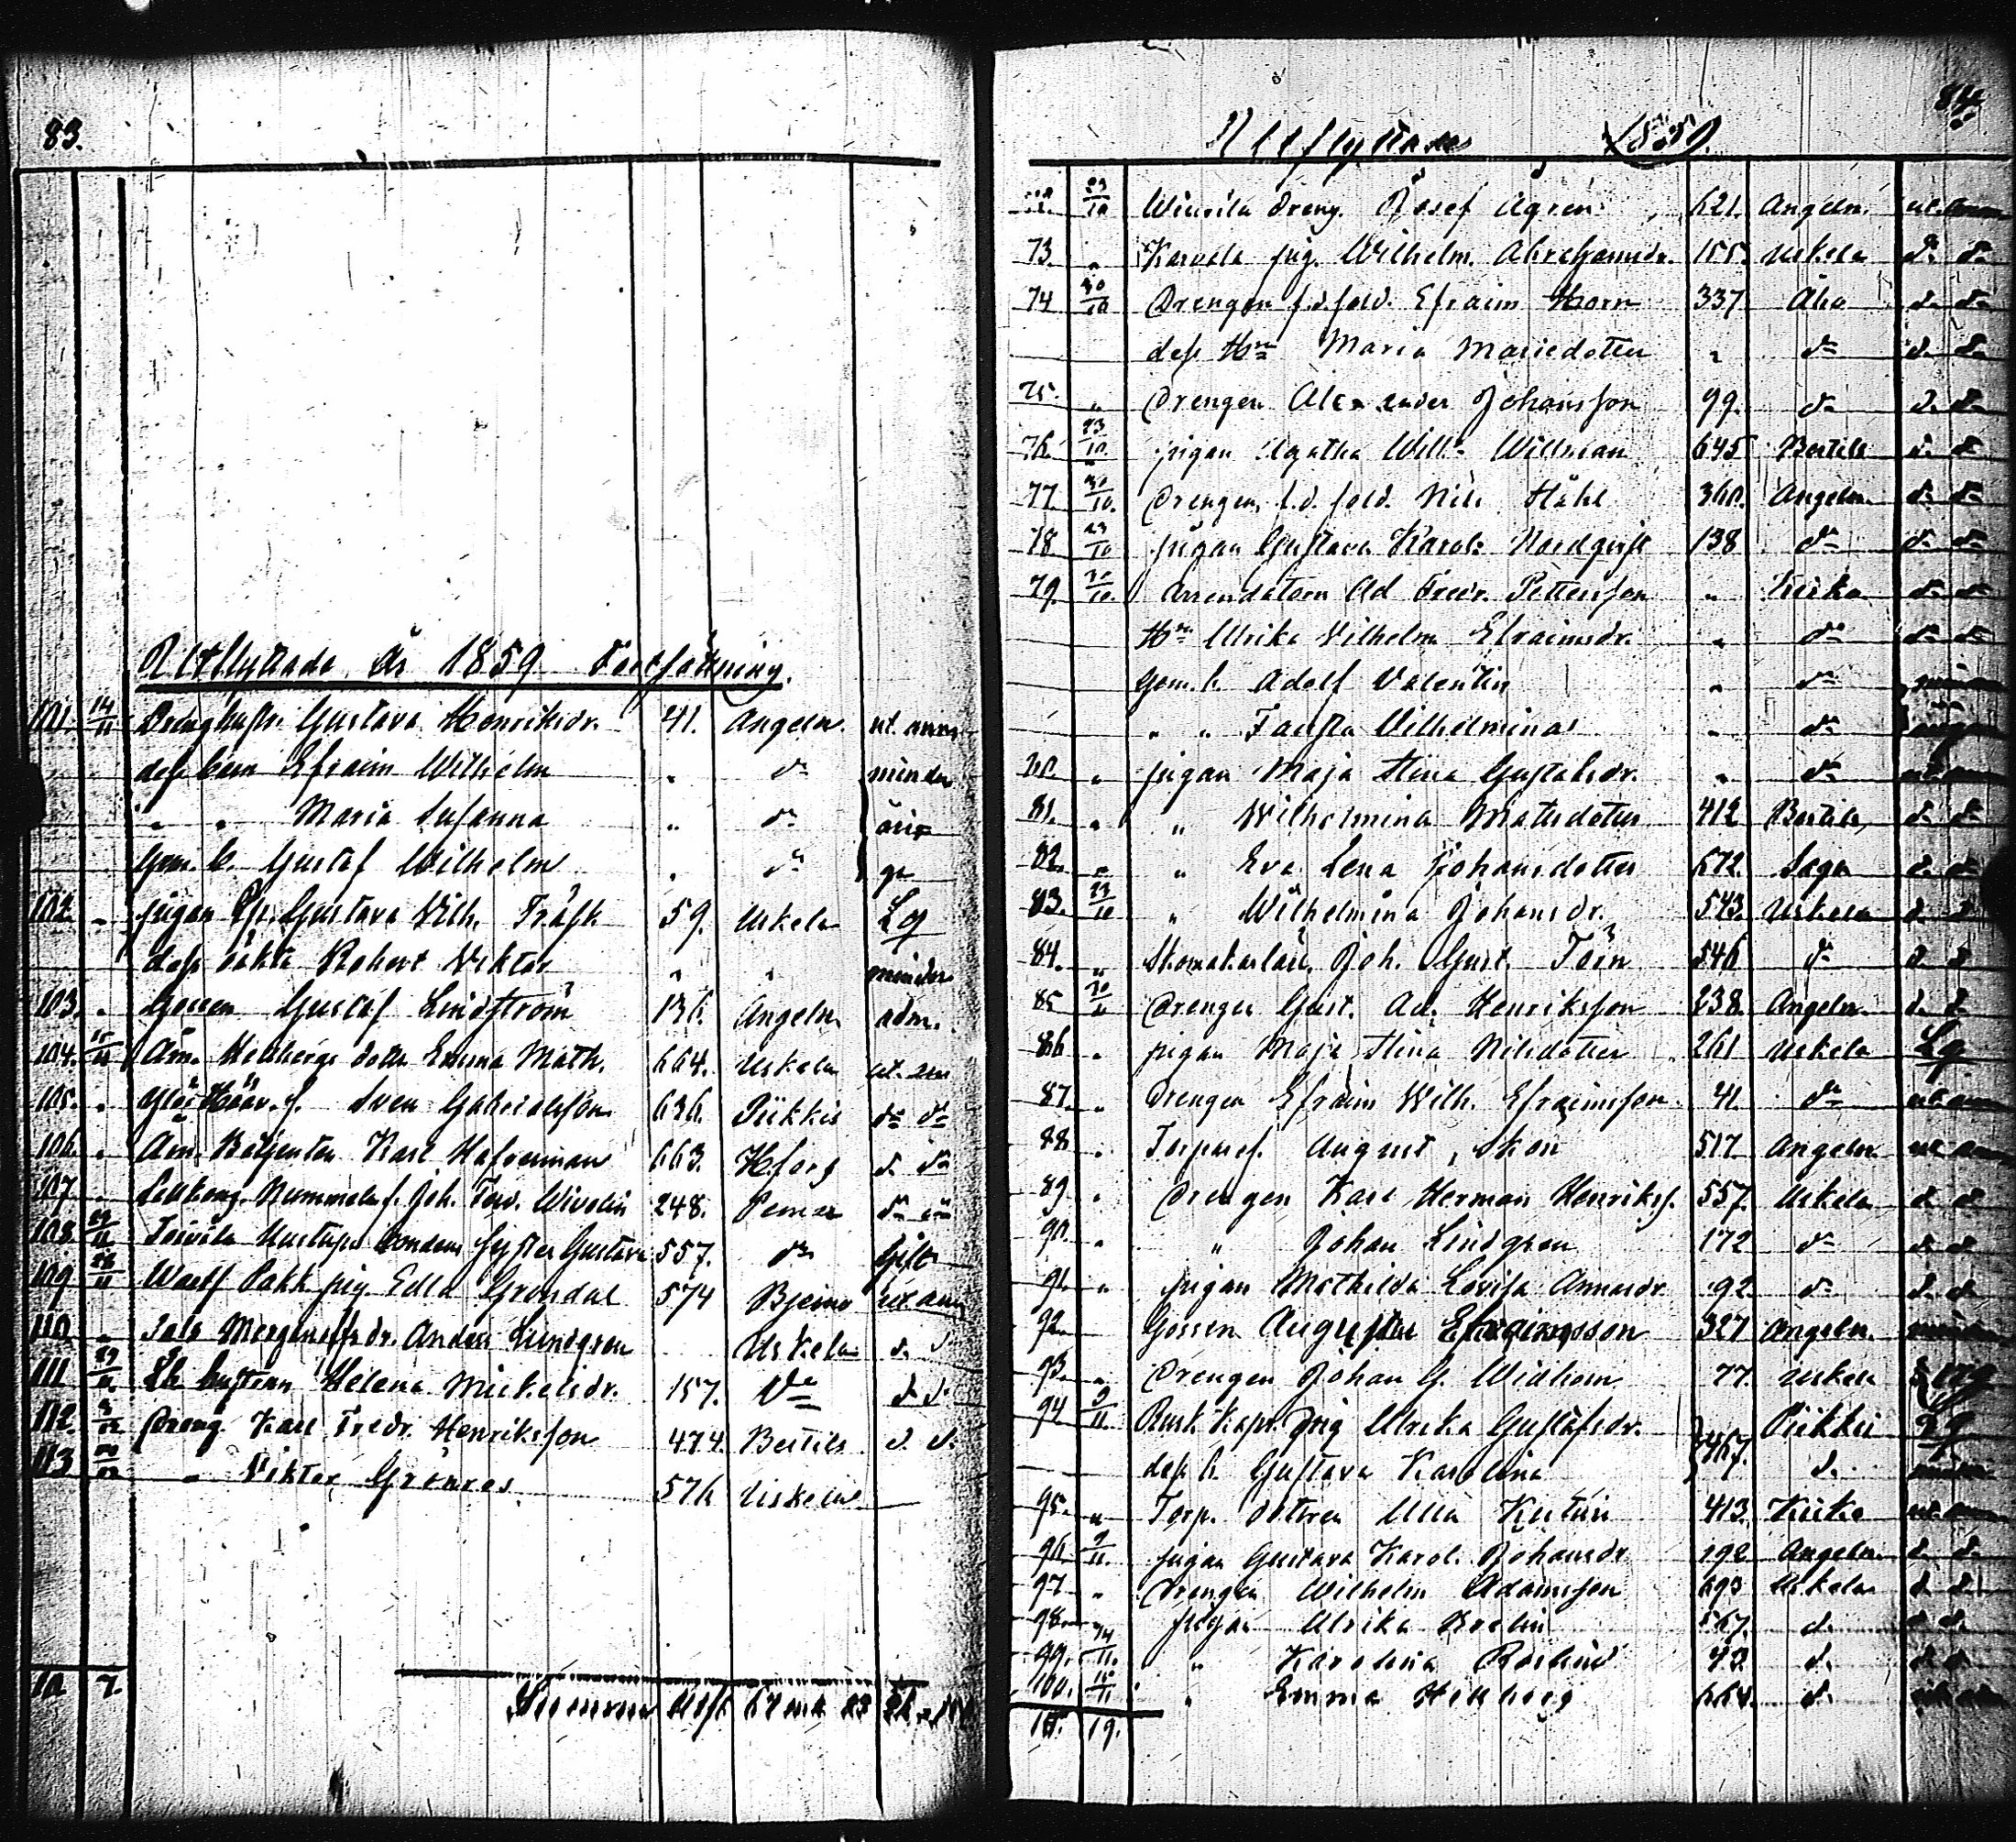 83.
Utflyttade År 1859 Fortsättning.
101. 14/11 Drenghustr. Gustava Henriksdr. 41. Angeln. ut. anm
dess barn Efraim Wilhelm " do minder
" " Maria Susanna " do årig
Gem. b. Gustaf Wilhelm " do ga
102. " pigan Gustava Vilh. Träsk 59. Uskela Lg
dess oäkta Robert Viktor " " minder
103. " Gossen Gustaf Lindström 136. Angeln adm.
104. 15/11 Åm. Hellbergs dotter Emma Math. 664. Uskela ut. anm
105. " Sven Gabrielsson 636. Piikkis do do
106. " Åm. Betjenten Karl Hafverman 663. Hfors d. do
107. " Nummela f. Joh. Ferd. Wivelin 248. Pemar do do
108. Toivila Mustapä bondens syster Gustava 557. do Gift
109 Pakk pig. Edla Gröndal 574 Bjerno ut anm
110 " Salo dr. Anders Lundgren Uskela d. d.
111 hustrun Helena Mickelsdr. 157. do d. d.
112. Dreng. Karl Fredr. Henriksson 474. Bertils d. d.
113 " Viktor Grönros 576 Uskela
10 7.
Summa
84
Utflyttade 1859.
23/10 dreng. Josef Ågren 621. Angeln. ut. anm
73. " Karvela pig. Wilhelm. Abrahamsdr. 155. Uskela d. do
74 30/10 Drengen f.d. sold. Efraim Horn 337 Åbo d. do
dess Hru Maria Mariedotter " do d. do
75. " Drengen Alexander Johansson 99. do d. do
76. 23/10 pigan Agatha Wilh. Willman 645 Bertils d. do
77. 30/10. Drengen f.d. sold. Nils Ståhl 360. Angeln do do
78 23/10 pigan Gustava Karol. Nordqvist 138 do do do
79. 30/10. Arrendatorn Ad Fredr. Pettersson " Kisko do do
Hru Ulrika Vilhelm. Efraimsdr. " do do do
Gem. b. Adolf Valentin " do
" " Fausta Vilhelmina " do
80. " pigan Maja Stina Gustafsdr. " do ut anm
81. " " Wilhelmina Matsdotter 412 Bertils d. do
82. " " Eva Lena Johansdotter 672. Sagu d. do
83. 23/10 " Wilhelmina Johansdr. 543. Uskela d. d
84. " Skomakarlär. Joh. Gust. Törn 546 do d. d
85 30/10 Drengen Gust. Ad. Henriksson 238. Angeln. d. d.
86 " pigan Maja Stina Nilsdotter 261 Uskela Lg.
87. " Drengen Efraim Wilh. Efraimsson 41. do ut anm
88 " August Skön 517 Angeln ut anm
89. " Drengen Karl Herman Henrikss. 557. Uskela d. d.
90. " " Johan Lindgren 172 do d. d.
91. " pigan Mathilda Lovisa Annasdr. 92. do d. d.
92. Gossen Auguster Efraimsson 327 Angeln.
93. " Drengen Johan G. Widbom 77. Uskela
94 Rusth. Kapr. pig Ulrika Gustafsdr. 467. Piikkis Lg
dess b. Gustava Karolina d.
95. " Torp. dottren Ulla 413. Kisko ut. anm
96. pigan Gustava Karol. Johansdr. 192 Angeln. d. d.
97 " Drengen Wilhelm Adamsson 693 Uskela d. d.
98. " pigan Ulrika 567. d. d. d.
99. 14/11. " Karolina Roslund 43. d. d. d.
100. 15/11. " Emma Hellberg 664. d.
10. 19.